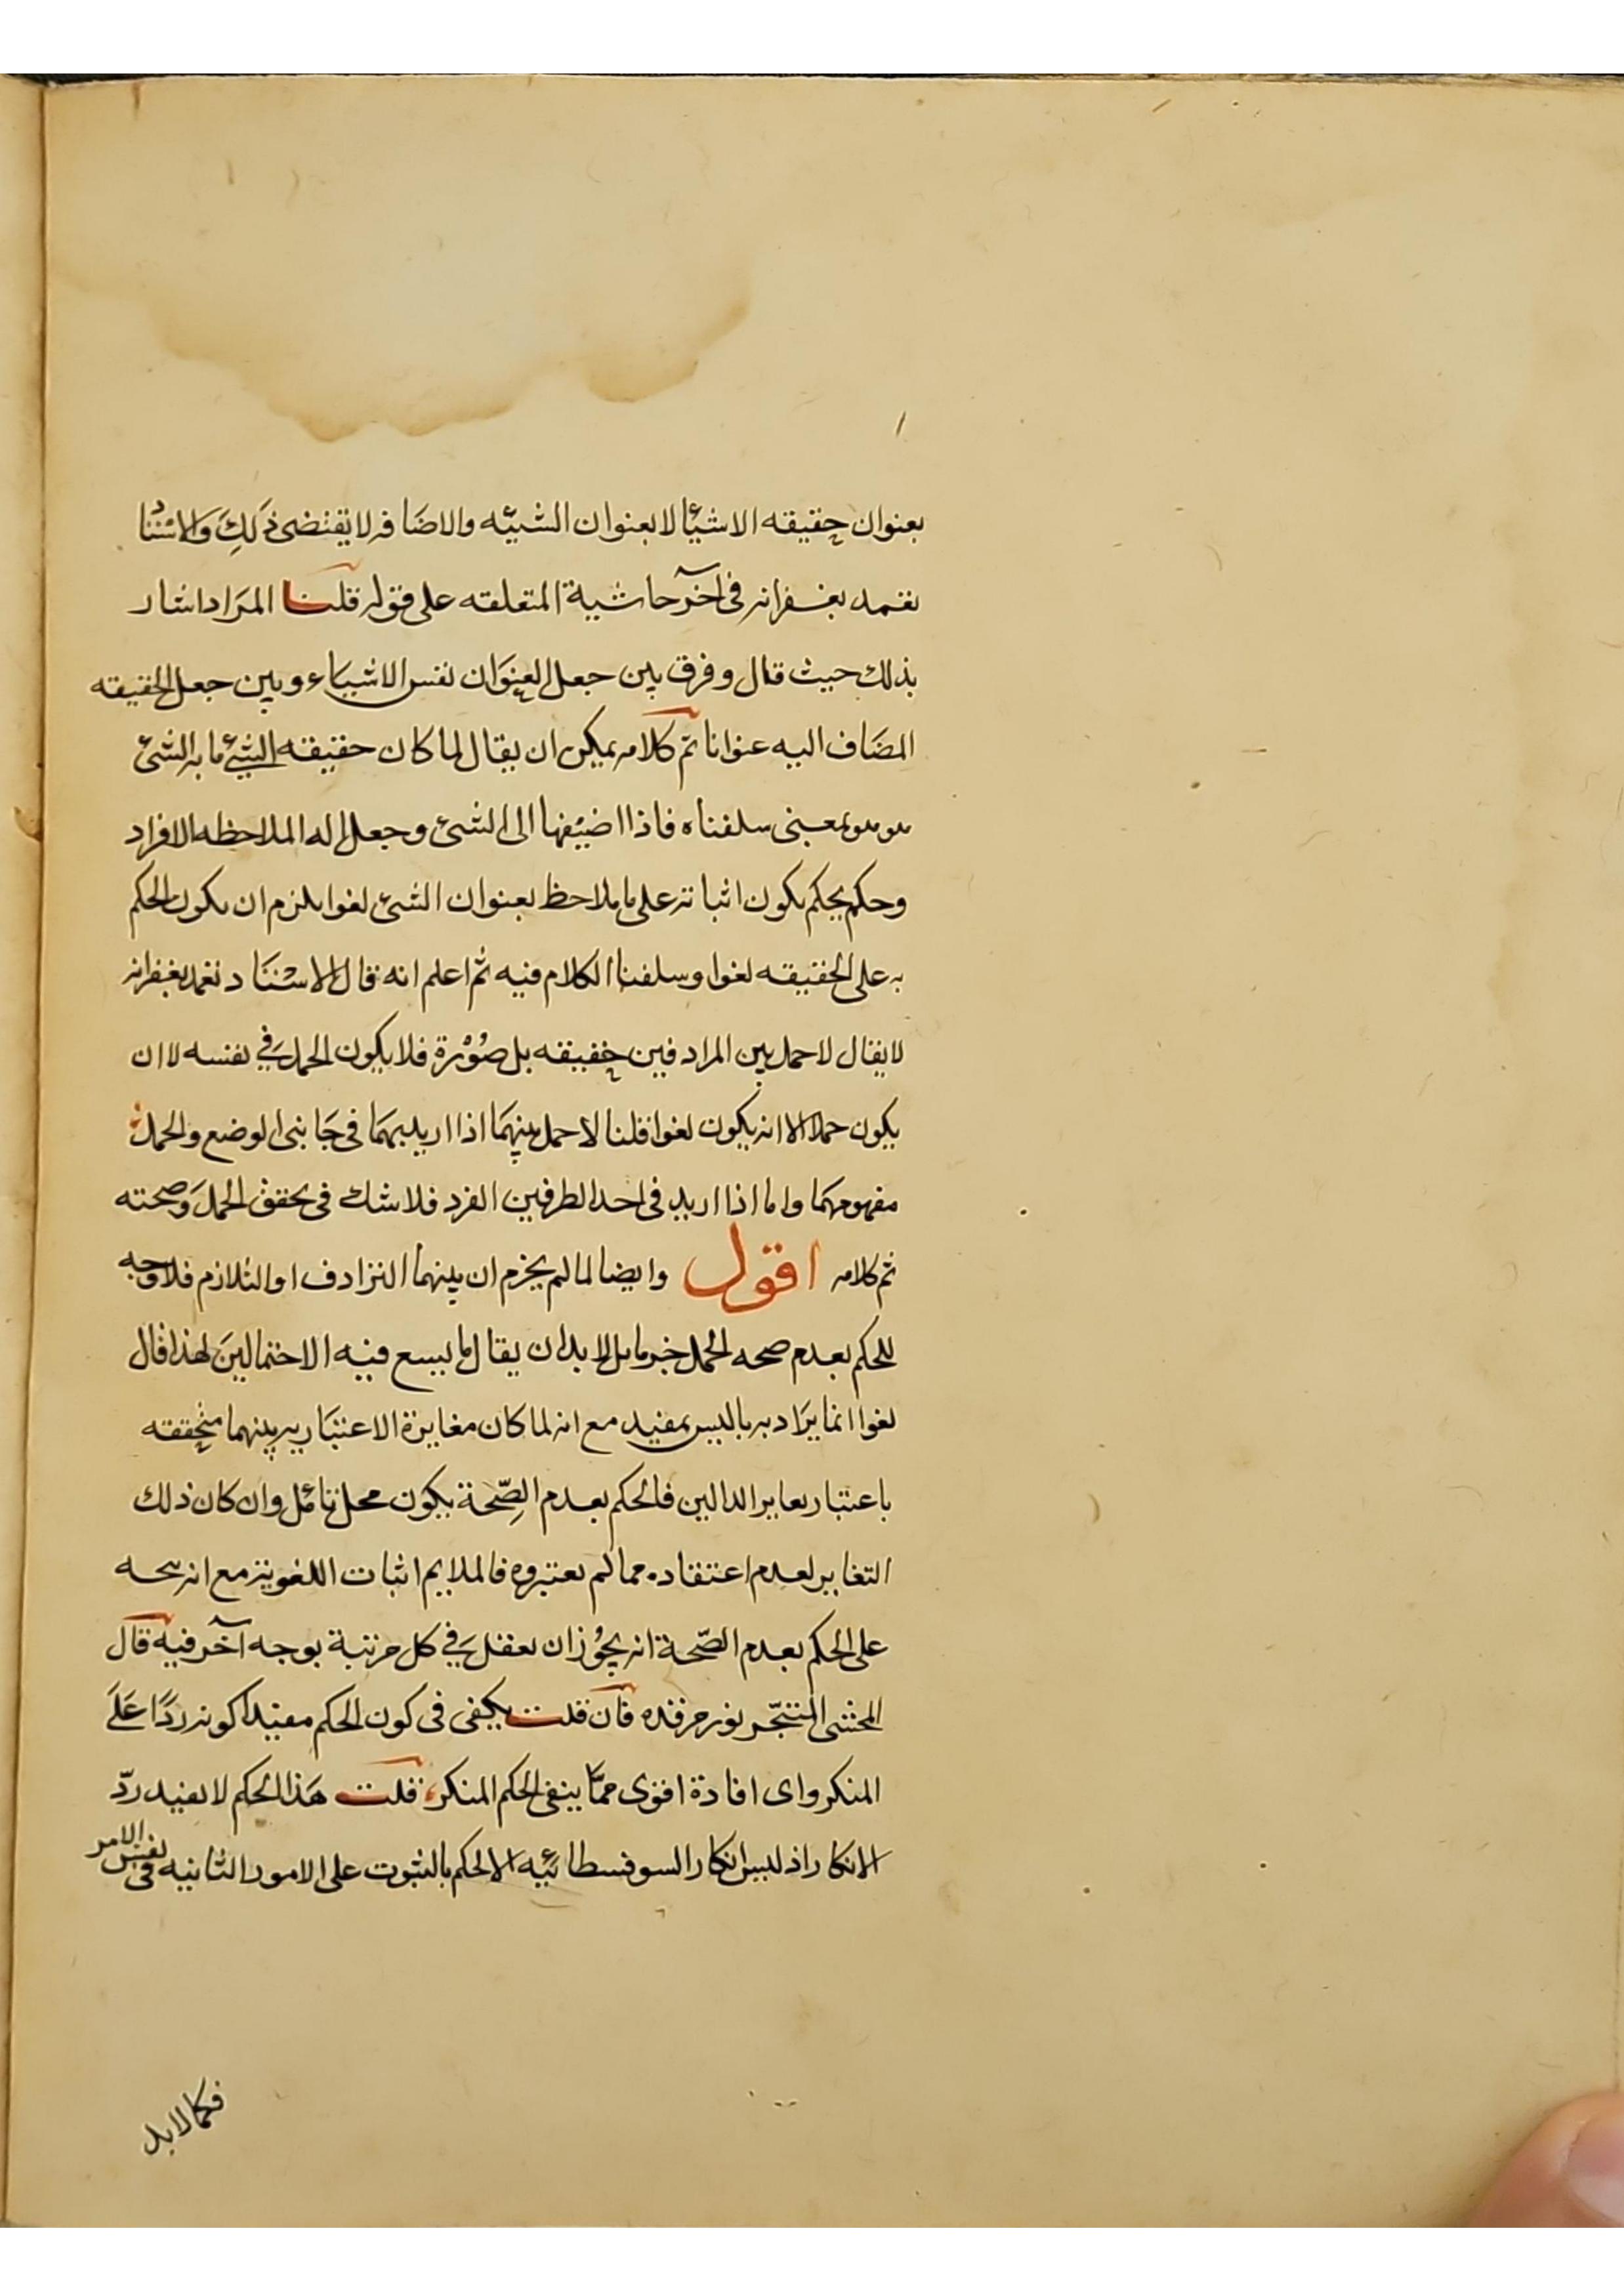 بعنوان حقيقه الاشيا لا بعنوان الشيئه والاضافه لا يقتضى ذلك والاستاد
تغمد بغفرانه فى آخر حاشية المتعلقه على قوله قلنا المراد اشار
بذلك حيث قال وفرق بين جعل العنوان نفس الاشياء وبين جعل الحقيقه
المضاف اليه عنوانا تم كلامه يمكن ان يقال لما كان حقيقه الشئ ما به الشئ
هو هو بمعنى سلفناه فاذا اضيفها الى الشئ وجعل اله الملاحظه الافراد
وحكم بحكم يكون اثباته على ما يلاحظ بعنوان الشئ لغوا يلزم ان يكون الحكم
به على الحقيقه لغوا وسلفنا الكلام فيه ثم اعلم انه قال الاستاد تغمد بغفرانه
لا يقال لا حمل بين المرادفين حقيقه بل صورة فلا يكون الحمل في نفسه لا ان
يكون حملا الا انه يكون لغوا قلنا لا حمل بينهما اذا اريد بهما فى جانبى الوضع والحمل
مفهومهما واما اذا اريد فى احد الطرفين الفرد فلا شك فى تحقق الحمل وصحته
تم كلامه اقول وايضا لما لم يجزم ان بينهما الترادف او التلازم فلا وجه
للحكم بعدم صحه الحمل جزما بل لا بد ان يقال ما يسع فيه الاحتمالين لهذا قال
لغوا انما يراد به ما ليس بمفيد مع انه لما كان مغايرة الاعتباريه بينهما متحققه
باعتبار تغاير الدالين فالحكم بعدم الصحة يكون محل تامل وان كان ذلك
التغاير لعدم اعتقاده مما لم يعتبروه فالملايم اثبات اللغوية مع انه
على الحكم بعدم الصحة انه يجوز ان يعقل في كل مرتبة بوجه آخر فيه قال
المحشى المتبحر نور مرقده فان قلت يكفى فى كون الحكم مفيدا كونه ردا على
المنكر واى افادة اقوى مما ينفى الحكم المنكر قلت هذا الحكم لا يفيد رد
الانكار اذ ليس انكار السوفسطائيه الا الحكم بالثبوت على الامور الثانيه فى نفس الامر
فكما لا بد